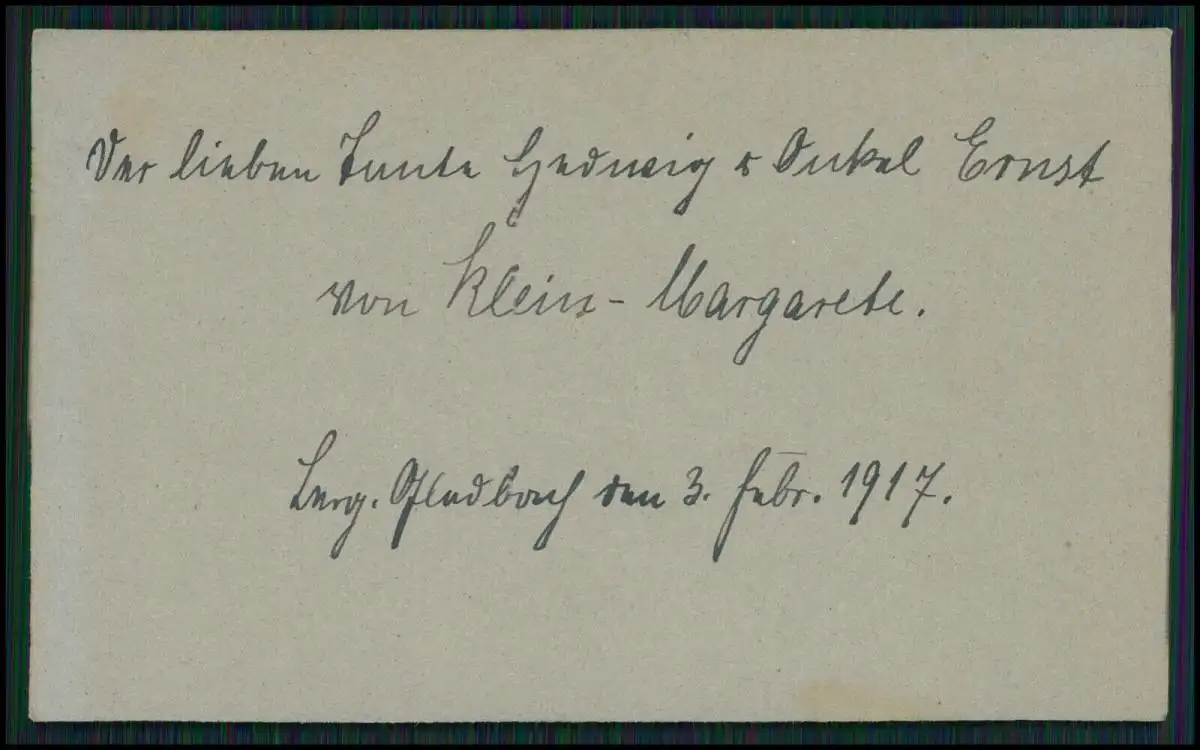 Der lieben Tante Hedwig u Onkel Ernst
von Klein-Margarete.
Berg. Gladbach den 3. Febr. 1917.